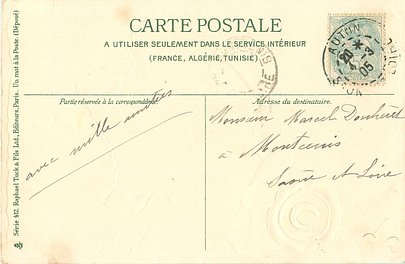 CARTE POSTALE
A UTILISER SEULEMENT DANS LE SERVICE INTÉRIEUR
(FRANCE, ALGÉRIE, TUNISIE)
AUTUN
20 *
4 - 3
05
Partie réservée à la correspondance.
Adresse du destinataire.
avec mille amitiés
Monsieur Marcel
à Montcenis
Saône et Loire
Série 412. Raphael Tuck & Fils Ltd., Editeurs, Paris. Un mot à la Poste. (Déposé)